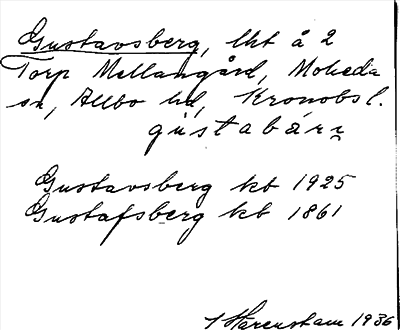 Gustavsberg, lht å 2
Torp Mellangård, Moheda
sn, Allbo hd, Kronobs l.
gústabárɲ
Gustavsberg kb 1925
Gustafsberg kb 1861
Harenstam 1936